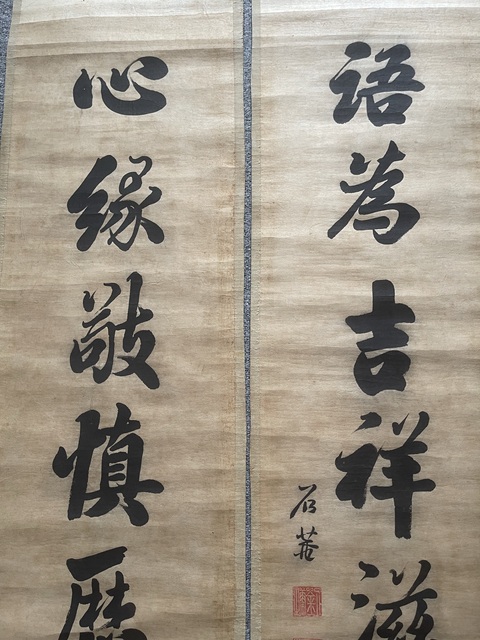 語為吉祥滋
心緣敬慎歷
石菴